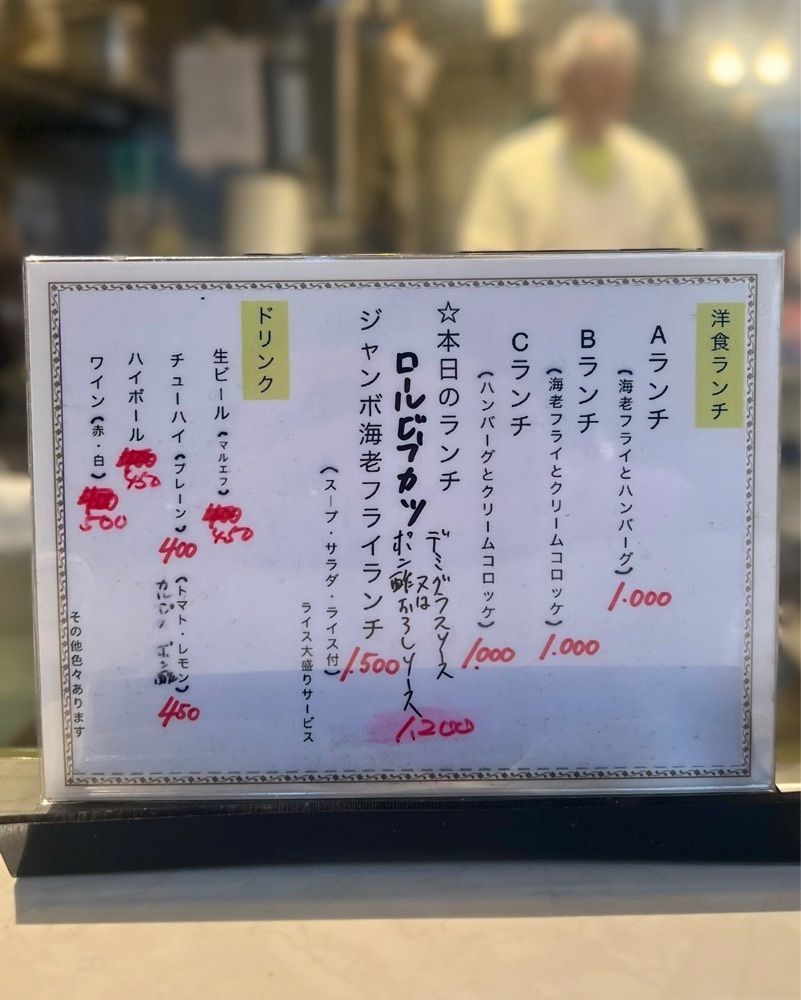 洋食ランチ
Aランチ
(海老フライとハンバーグ)
1.000
Bランチ
(海老フライとクリームコロッケ)
1.000
Cランチ
(ハンバーグとクリームコロッケ)
1.000
☆本日のランチ
ロールビーフカツ
デミグラスソース
又は
ポン酢おろしソース
1,200
ジャンボ海老フライランチ
1.500
(スープ・サラダ・ライス付)
ライス大盛りサービス
ドリンク
生ビール(マルエフ)
450
チューハイ(プレーン)
400
(トマト・レモン)
カルピス
450
ハイボール
450
ワイン(赤・白)
500
その他色々あります